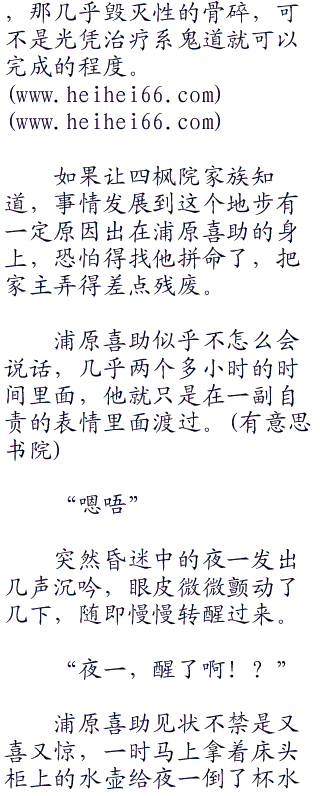 ，那几乎毁灭性的骨碎，可
不是光凭治疗系鬼道就可以
完成的程度。
(www.heihei66.com)
(www.heihei66.com)
如果让四枫院家族知
道，事情发展到这个地步有
一定原因出在浦原喜助的身
上，恐怕得找他拼命了，把
家主弄得差点残废。
浦原喜助似乎不怎么会
说话，几乎两个多小时的时
间里面，他就只是在一副自
责的表情里面渡过。(有意思
书院)
“嗯唔”
突然昏迷中的夜一发出
几声沉吟，眼皮微微颤动了
几下，随即慢慢转醒过来。
“夜一，醒了啊！？”
浦原喜助见状不禁是又
喜又惊，一时马上拿着床头
柜上的水壶给夜一倒了杯水